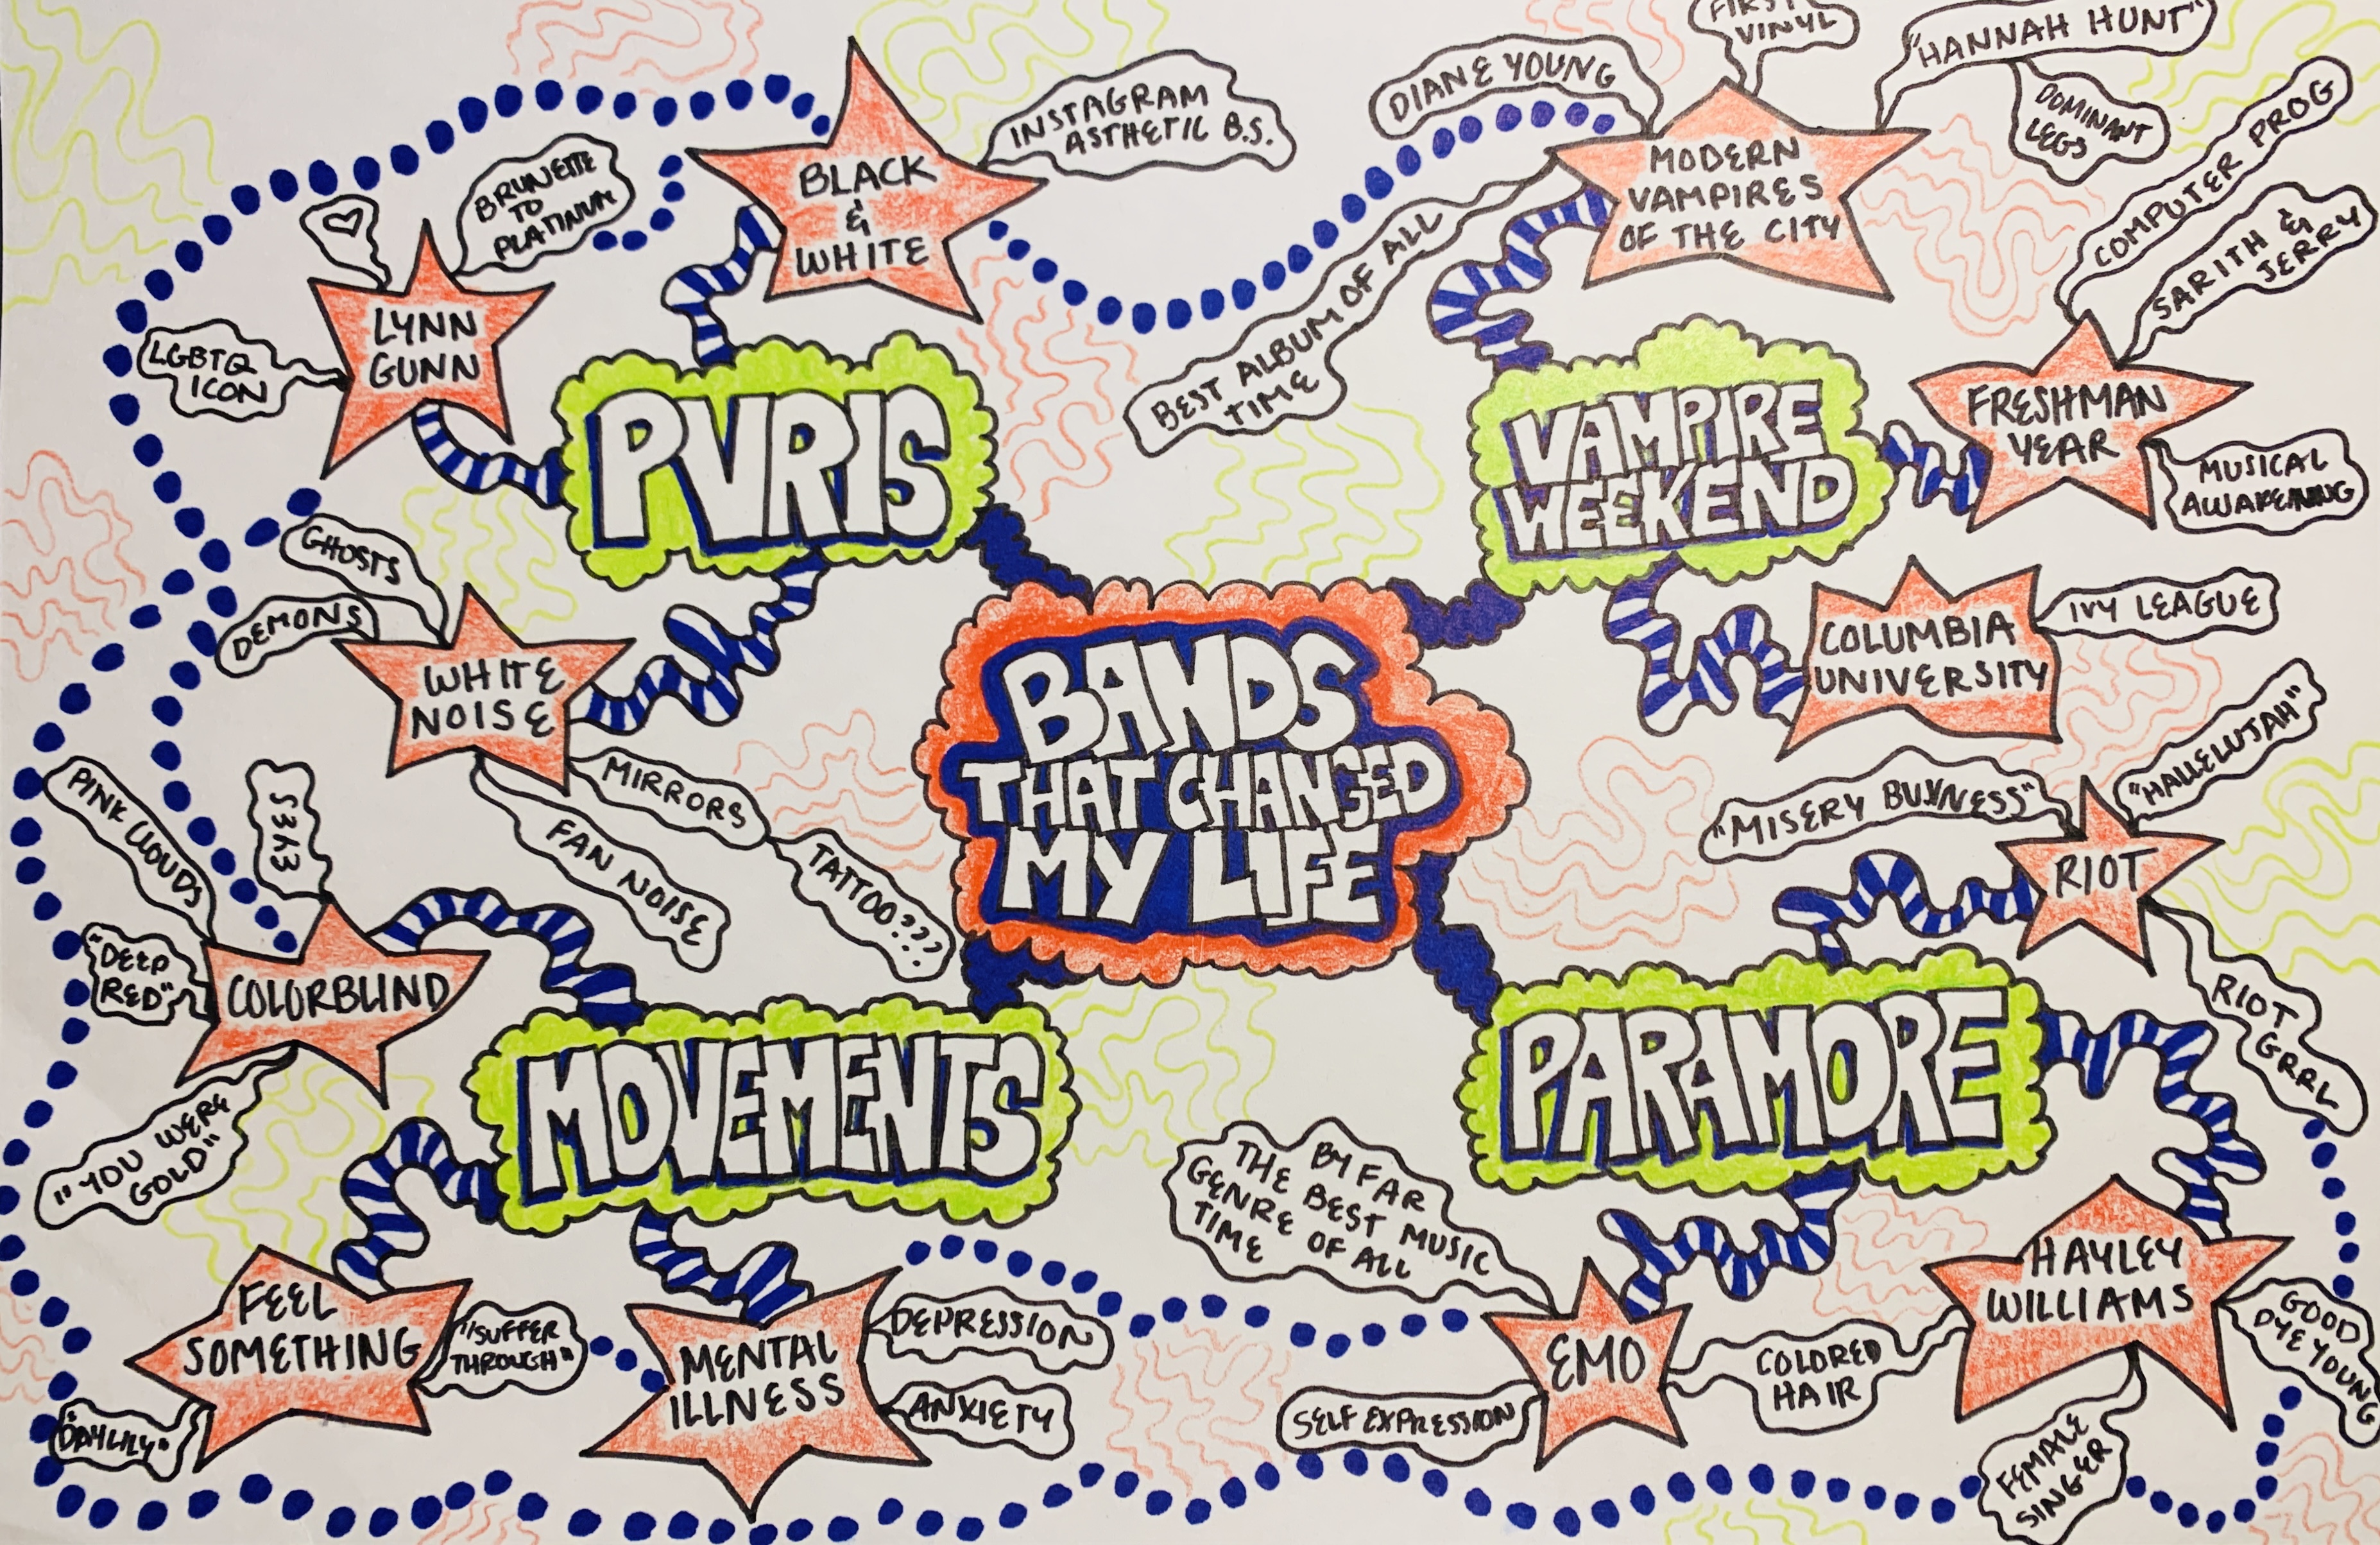 BANDS
THAT CHANGED
MY LIFE
PVRIS
BLACK
&
WHITE
INSTAGRAM
ASTHETIC B.S.
LYNN
GUNN
BRUNETTE
TO
PLATINUM
LGBTQ
ICON
WHITE
NOISE
GHOSTS
DEMONS
MIRRORS
TATTOO???
FAN NOISE
VAMPIRE
WEEKEND
MODERN
VAMPIRES
OF THE CITY
DIANE YOUNG
FIRST
VINYL
"HANNAH HUNT"
DOMINANT
LEGS
BEST ALBUM OF ALL
TIME
FRESHMAN
YEAR
COMPUTER PROG
SARITH &
JERRY
MUSICAL
AWAKENING
COLUMBIA
UNIVERSITY
IVY LEAGUE
MOVEMENTS
COLORBLIND
PINK CLOUDS
EYES
"DEEP
RED"
"YOU WERE
GOLD"
FEEL
SOMETHING
"SUFFER
THROUGH"
"DAYLILY"
MENTAL
ILLNESS
DEPRESSION
ANXIETY
PARAMORE
RIOT
"MISERY BUSINESS"
"HALLELUJAH"
RIOT
GRRL
HAYLEY
WILLIAMS
GOOD
DYE YOUNG
FEMALE
SINGER
COLORED
HAIR
EMO
BY FAR
THE BEST MUSIC
GENRE OF ALL
TIME
SELF EXPRESSION